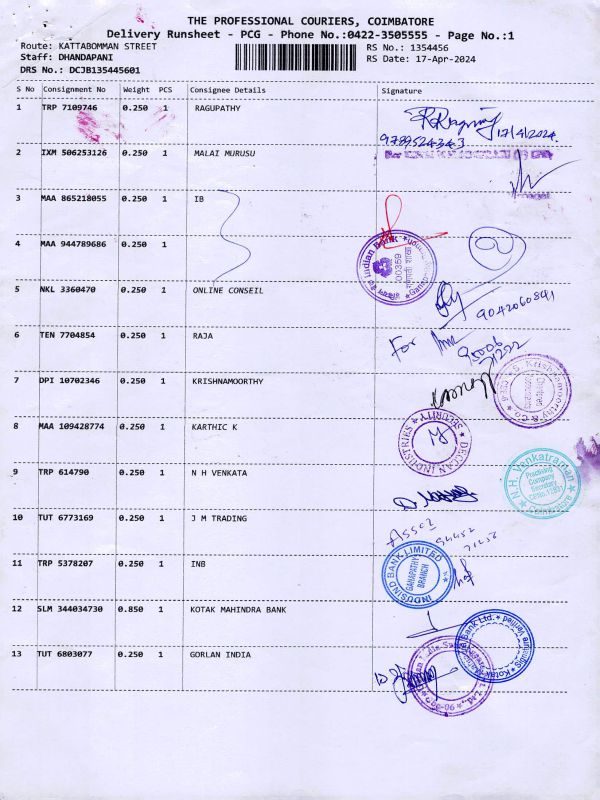 THE PROFESSIONAL COURIERS, COIMBATORE
Delivery Runsheet - PCG - Phone No.:0422-3505555 - Page No.:1
Route: KATTABOMMAN STREET
RS No.: 1354456
Staff: DHANDAPANI
RS Date: 17-Apr-2024
DRS No.: DCJB135445601
S No Consignment No Weight PCS Consignee Details Signature
1 TRP 7109746 0.250 1 RAGUPATHY
17/4/2024
9789524343
2 IXM 506253126 0.250 1 MALAI MURUSU
3 MAA 865218055 0.250 1 IB
Indian Bank
00359
4 MAA 944789686 0.250 1
5 NKL 3360470 0.250 1 ONLINE CONSEIL
9042060841
6 TEN 7704854 0.250 1 RAJA
For
95006
71222
7 DPI 10702346 0.250 1 KRISHNAMOORTHY
S. Krishnamoorthy & Co
8 MAA 109428774 0.250 1 KARTHIC K
DECCAN INDUSTRIES
SECURITY
9 TRP 614790 0.250 1 N H VENKATA
N.H. Venkatraman
Practising
Company
Secretary
10 TUT 6773169 0.250 1 J M TRADING
94452
71256
11 TRP 5378207 0.250 1 INB
INDUSIND BANK LIMITED
GANAPATHY
BRANCH
12 SLM 344034730 0.850 1 KOTAK MAHINDRA BANK
Bank Ltd.
Signature Verified
Kotak
13 TUT 6803077 0.250 1 GORLAN INDIA